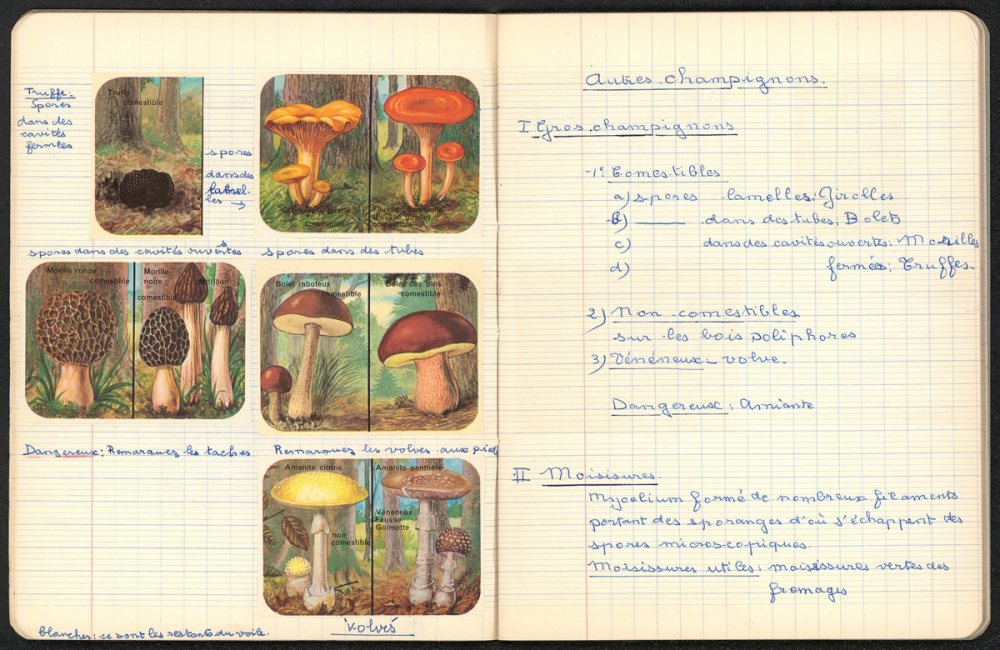 Truffe:
Spores
dans des
cavités
fermées
Truffe
comestible
spores
dans des
lamel-
les →
comestible
spores dans des cavités ouvertes
spores dans des tubes
Morille ronde
Morille
noire
comestible
Morillon
Bolet raboteux
comestible
Bolet des pins
comestible
Dangereux: Remarquez les taches
Remarquez les volves aux pieds
Amanite citrine
non
comestible
Amanite panthère
Vénéneux
Fausse
Golmotte
blanches: ce sont les restants du voile.
Volves
Autres champignons.
I Gros champignons
-1° Comestibles
a) spores lamelles: Girolles
b) —— dans des tubes: Bolets
c) dans des cavités ouvertes: Morilles
d) fermées: Truffes.
2) Non comestibles
sur les bois poliphores
3) Vénéneux - volve.
Dangereux: Amiante
II Moisisures.
Mycelium formé de nombreux filaments
portant des sporanges d'où s'échappent des
spores microscopiques.
Moisissures utiles: moisissures vertes des
fromages